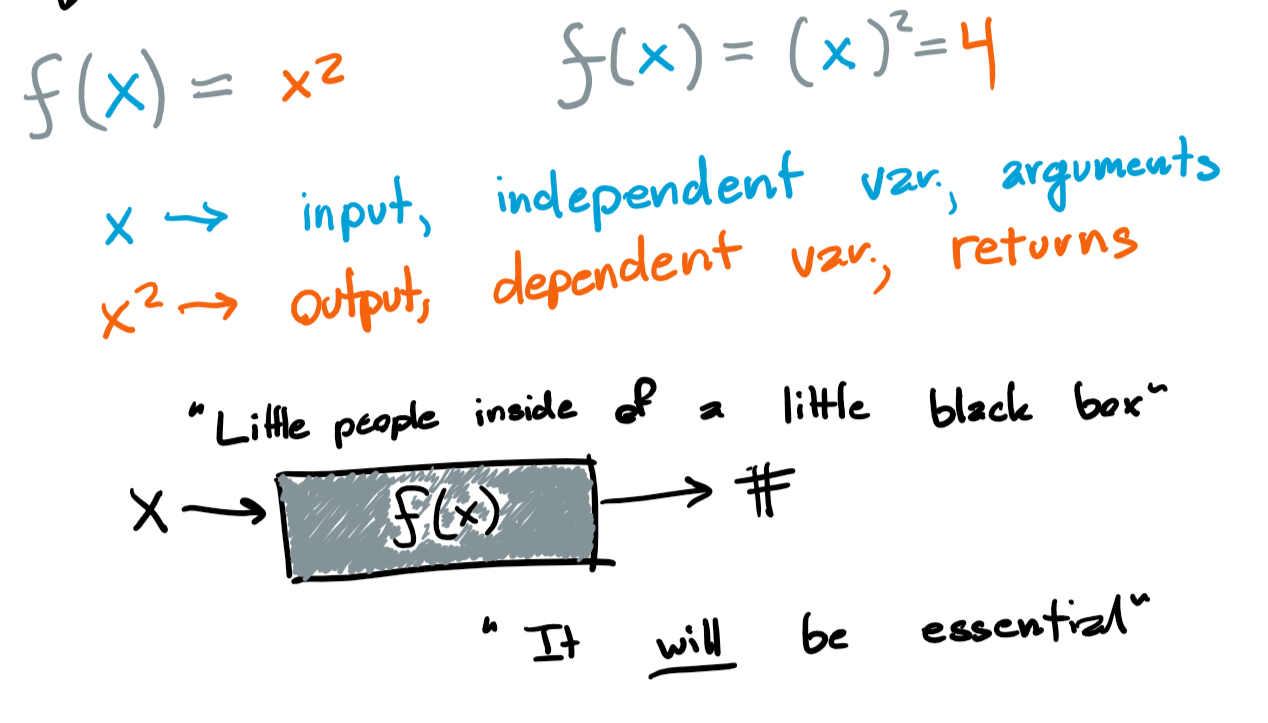 f(x) = x²
f(x) = (x)² = 4
x → input, independent var., arguments
x² → output, dependent var., returns
"Little people inside of a little black box"
X → f(x) → #
"It will be essential"